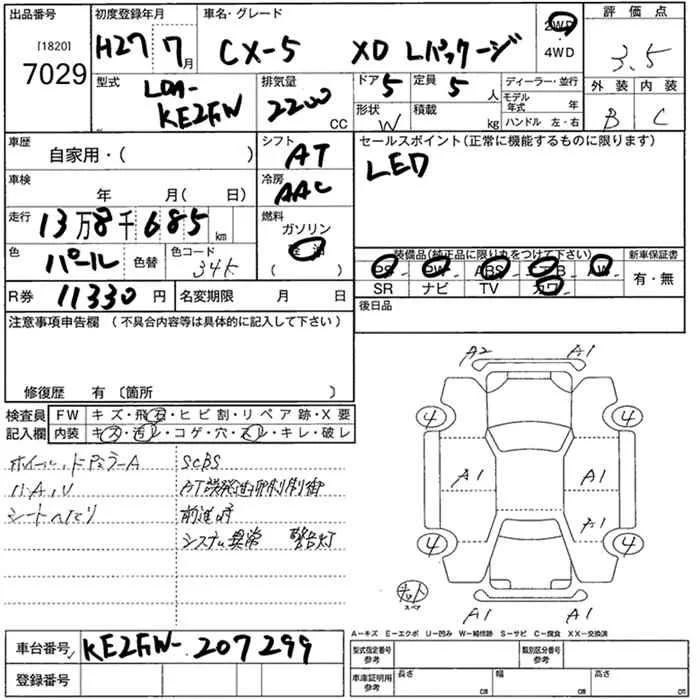 出品番号 初度登録年月 車名・グレード 評価点
[1820]
7029
H27 7月 CX-5 XD Lパッケージ 2WD
4WD
3.5
型式 LDA-KE2FW 排気量 2200 CC
ドア 5 定員 5 人 ディーラー・並行 外装 内装
形状 W 積載 kg モデル年式 年 B C
ハンドル 左・右
車歴 自家用・( ) シフト AT セールスポイント(正常に機能するものに限ります)
車検 年 月( 日) 冷房 AAC LED
走行 13万8千685km 燃料 ガソリン
色 パール 色替 色コード 34K ( )
装備品(純正品に限り丸をつけて下さい) 新車保証書
PS PW ABS AW 有・無
SR ナビ TV カワ
R券 11330円 名変期限 月 日 後日品
注意事項申告欄 (不具合内容等は具体的に記入して下さい)
修復歴 有〔箇所 〕
検査員 FW キズ・飛石・ヒビ割・リペア跡・X要
記入欄 内装 キズ・汚レ・コゲ・穴・スレ・キレ・破レ
SCBS
シートヘタリ 前進時
システム異常 警告灯
A2 A1
4 4
A1 A1
A1
4 4
スペア
A1 A1
A-キズ E-エクボ U-凹み W-補修跡 S-サビ C-腐食 XX-交換済
車台番号 KE2FW-207299
登録番号
型式指定番号 参考 類別区分番号 参考
車庫証明用 参考 長さ cm 幅 cm 高さ cm